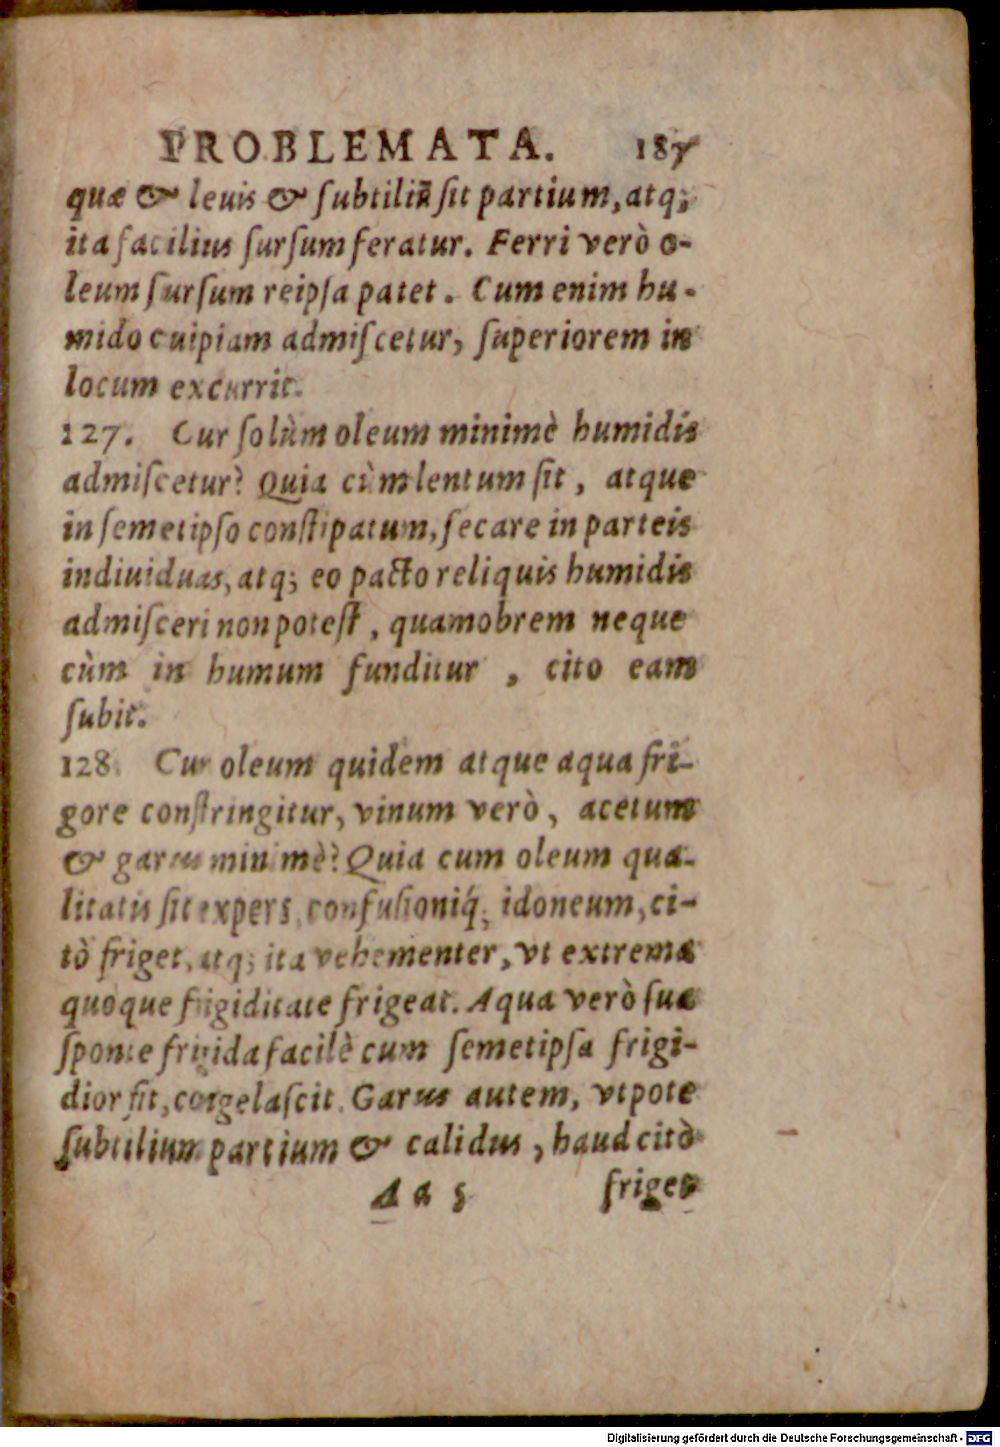 PROBLEMATA. 187
quæ & leuis & ſubtiliũ ſit partium, atq;
ita facilius ſurſum feratur. Ferri verò o-
leum ſurſum reipſa patet. Cum enim hu-
mido cuipiam admiſcetur, ſuperiorem in
locum excurrit.
127. Cur ſolùm oleum minimè humidis
admiſcetur? Quia cùm lentum ſit, atque
in ſemetipſo conſtipatum, ſecare in parteis
indiuiduas, atq; eo pacto reliquis humidis
admiſceri non poteſt, quamobrem neque
cùm in humum funditur, cito eam
ſubit.
128. Cur oleum quidem atque aqua fri-
gore conſtringitur, vinum verò, acetum
& garus minimè? Quia cum oleum qua-
litatis ſit expers, confuſioniq́; idoneum, ci-
tò friget, atq; ita vehementer, vt extrema
quoque frigiditate frigeat. Aqua verò ſua
ſponte frigida facilè cum ſemetipſa frigi-
dior ſit, congelaſcit. Garus autem, vtpote
ſubtilium partium & calidus, haud citò
Aa 5 friget
Digitalisierung gefördert durch die Deutsche Forschungsgemeinschaft - DFG